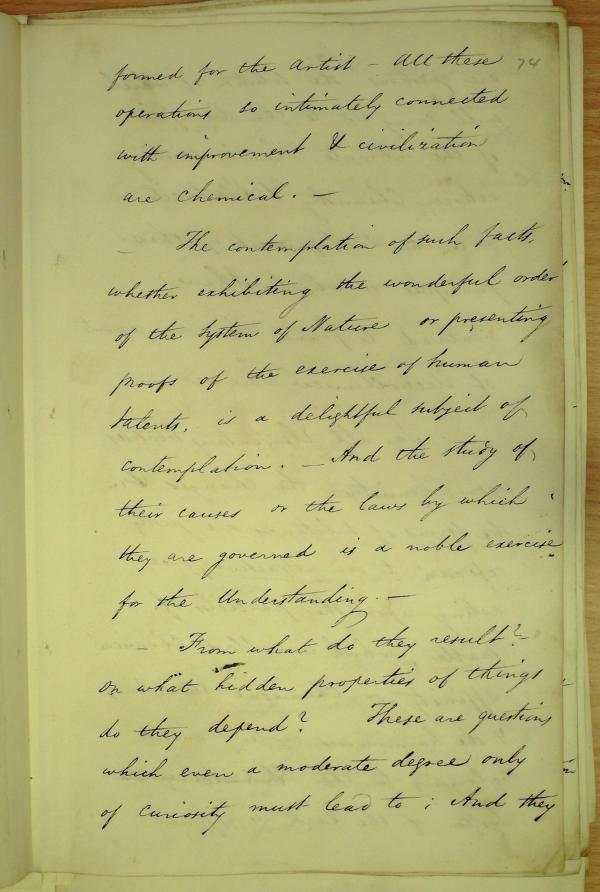 formed for the Artist – All these 74
operations so intimately connected
with improvement & civilization
are Chemical. –
– The contemplation of such facts,
whether exhibiting the wonderful order
of the System of Nature or presenting
proofs of the exercise of human
talents, is a delightful subject of
contemplation. – And the study of
their causes or the laws by which
they are governed is a noble exercise
for the Understanding. –
From what do they result? –
On what hidden properties of things
do they depend? These are questions
which even a moderate degree only
of curiosity must lead to; And they